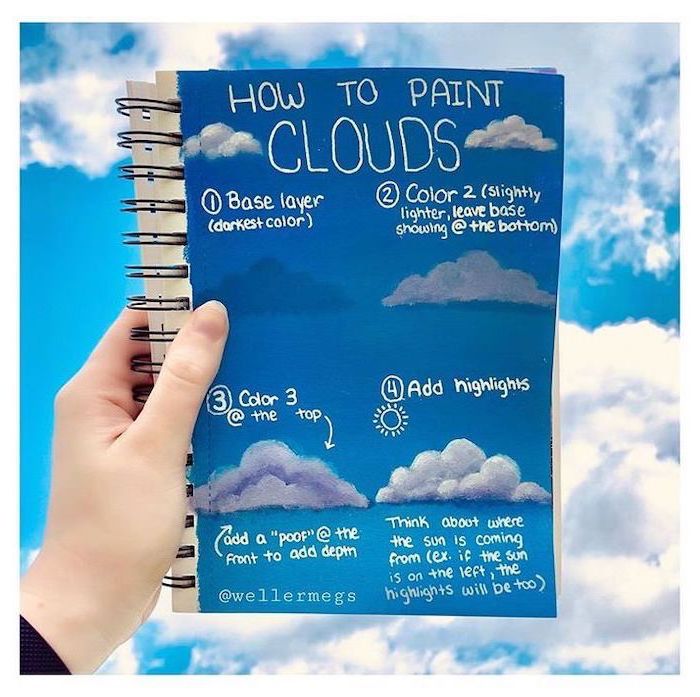 HOW TO PAINT
CLOUDS
① Base layer
(darkest color)
② Color 2 (slightly
lighter, leave base
showing @ the bottom)
③ Color 3
@ the top
④ Add highlights
add a "poof" @ the
front to add depth
Think about where
the sun is coming
from (ex. if the sun
is on the left, the
highlights will be too)
@wellermegs